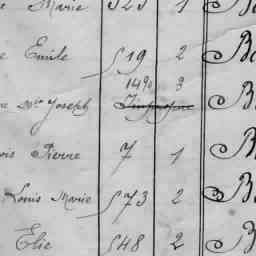 Marie 523 1 B
e Emile 519 2 B
1490 3
re Mie Joseph B
ois Pierre 7 1 B
Louis Marie 573 2 B
Elie 548 2 B